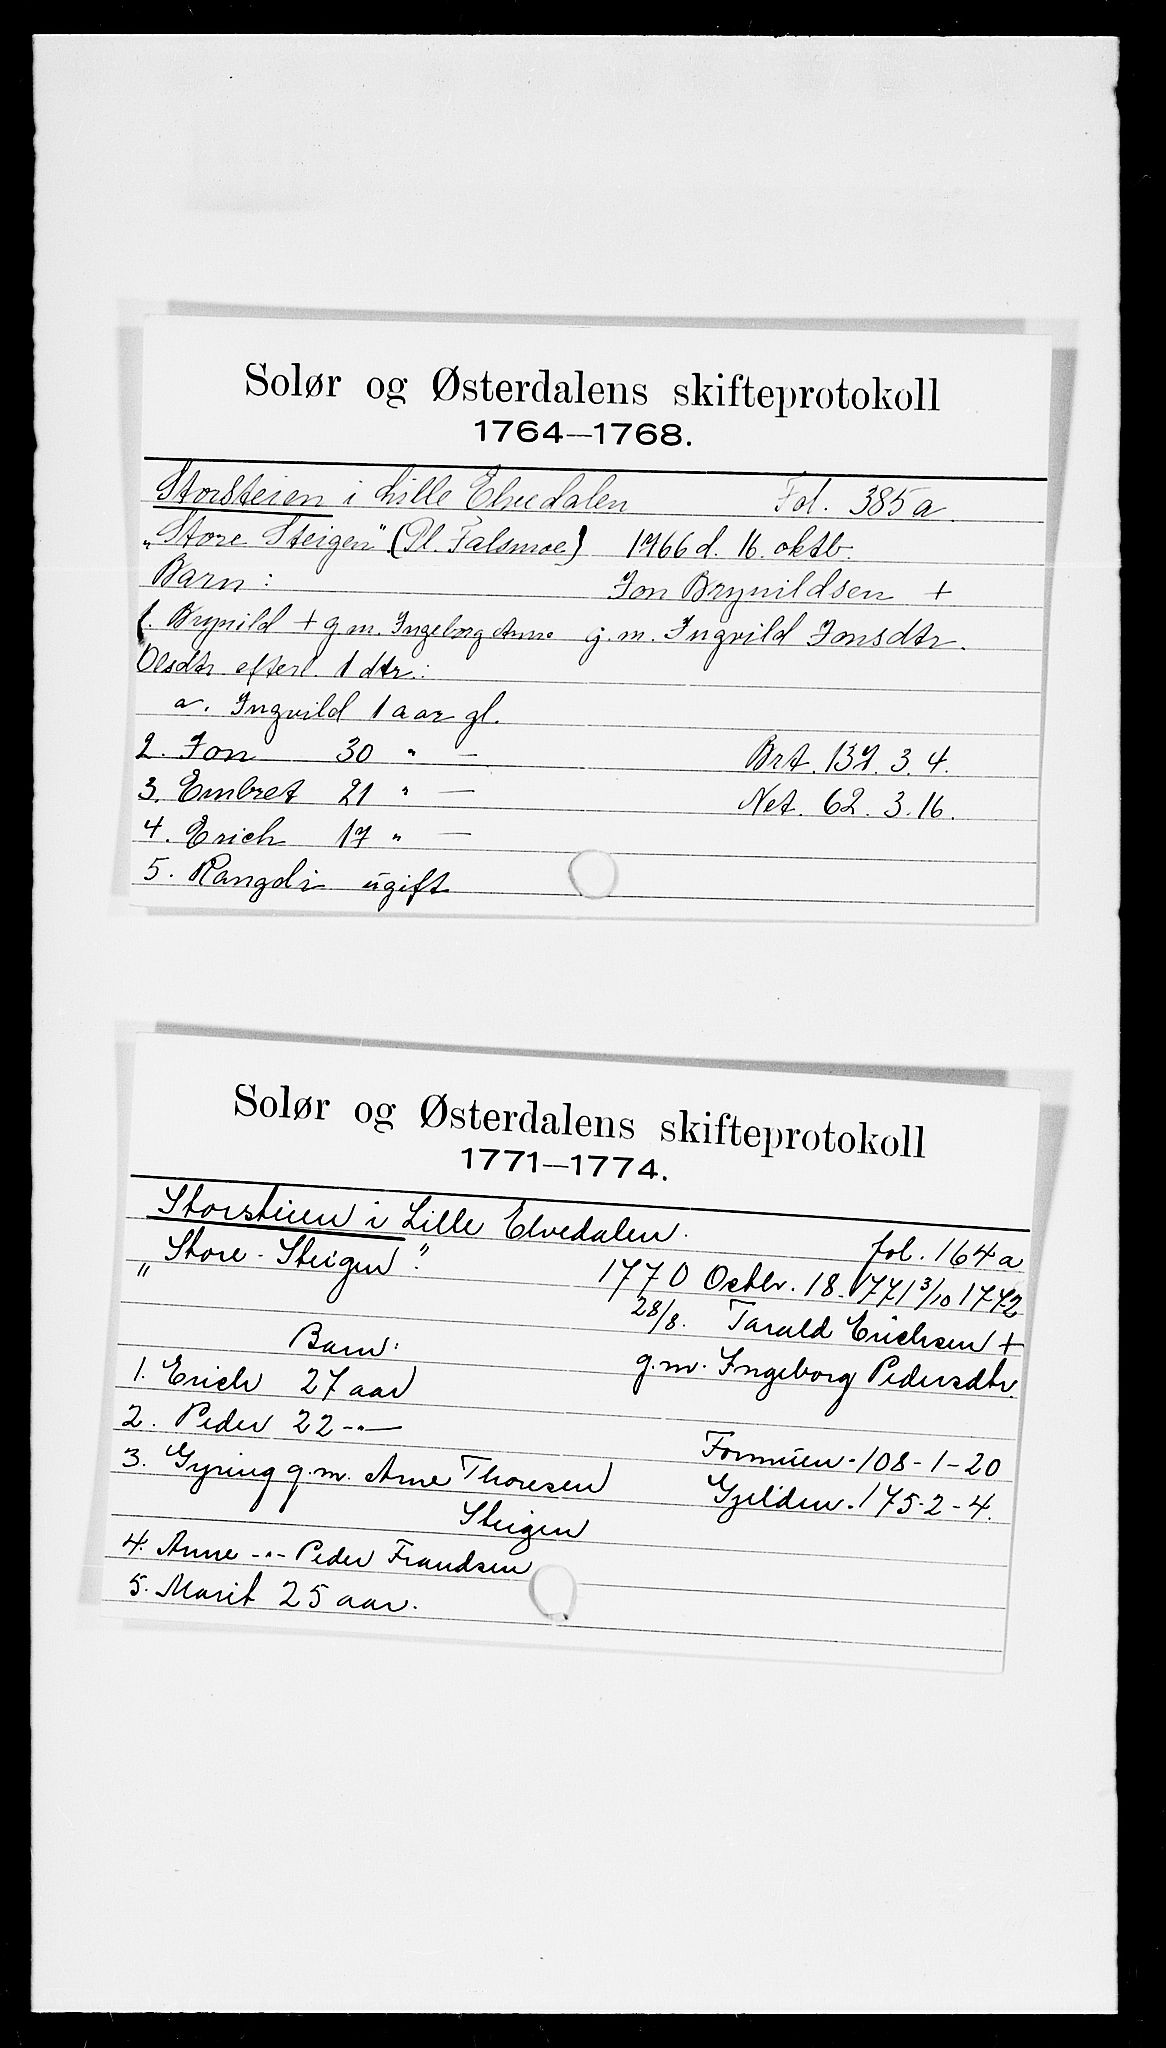 Solør og Østerdalens skifteprotokoll
1764—1768.
Storsteien i Lille Elvedalen Fol. 385a.
„Store Steigen" (Pl. Falsmoe) 1766 d. 16. oktb.
Barn: Jon Brynildsen +
1. Brynild + g.m. Ingeborg Anne g.m. Ingvild Jonsdtr.
Olsdtr efterl. 1 dtr.:
a. Ingvild 1 aar gl.
2. Jon 30 " — Brt. 137. 3. 4.
3. Embret 21 " — Net. 62. 3. 16.
4. Erich 17 " —
5. Rangdi ugift
Solør og Østerdalens skifteprotokoll
1771—1774.
Storsteien i Lille Elvedalen. fol. 164a
„Store-Steigen". 1770 Octbr. 18. 1771 3/10 1772
28/8. Tarald Erichsen +
Barn: g.m. Ingeborg Pedersdtr.
1. Erich 27 aar
2. Peder 22 -"- Formuen - 108-1-20
3. Gyring g.m. Arne Thoresen Gjelden. 175-2-4.
Steigen
4. Anne -"- Peder Frandsen
5. Marit 25 aar.